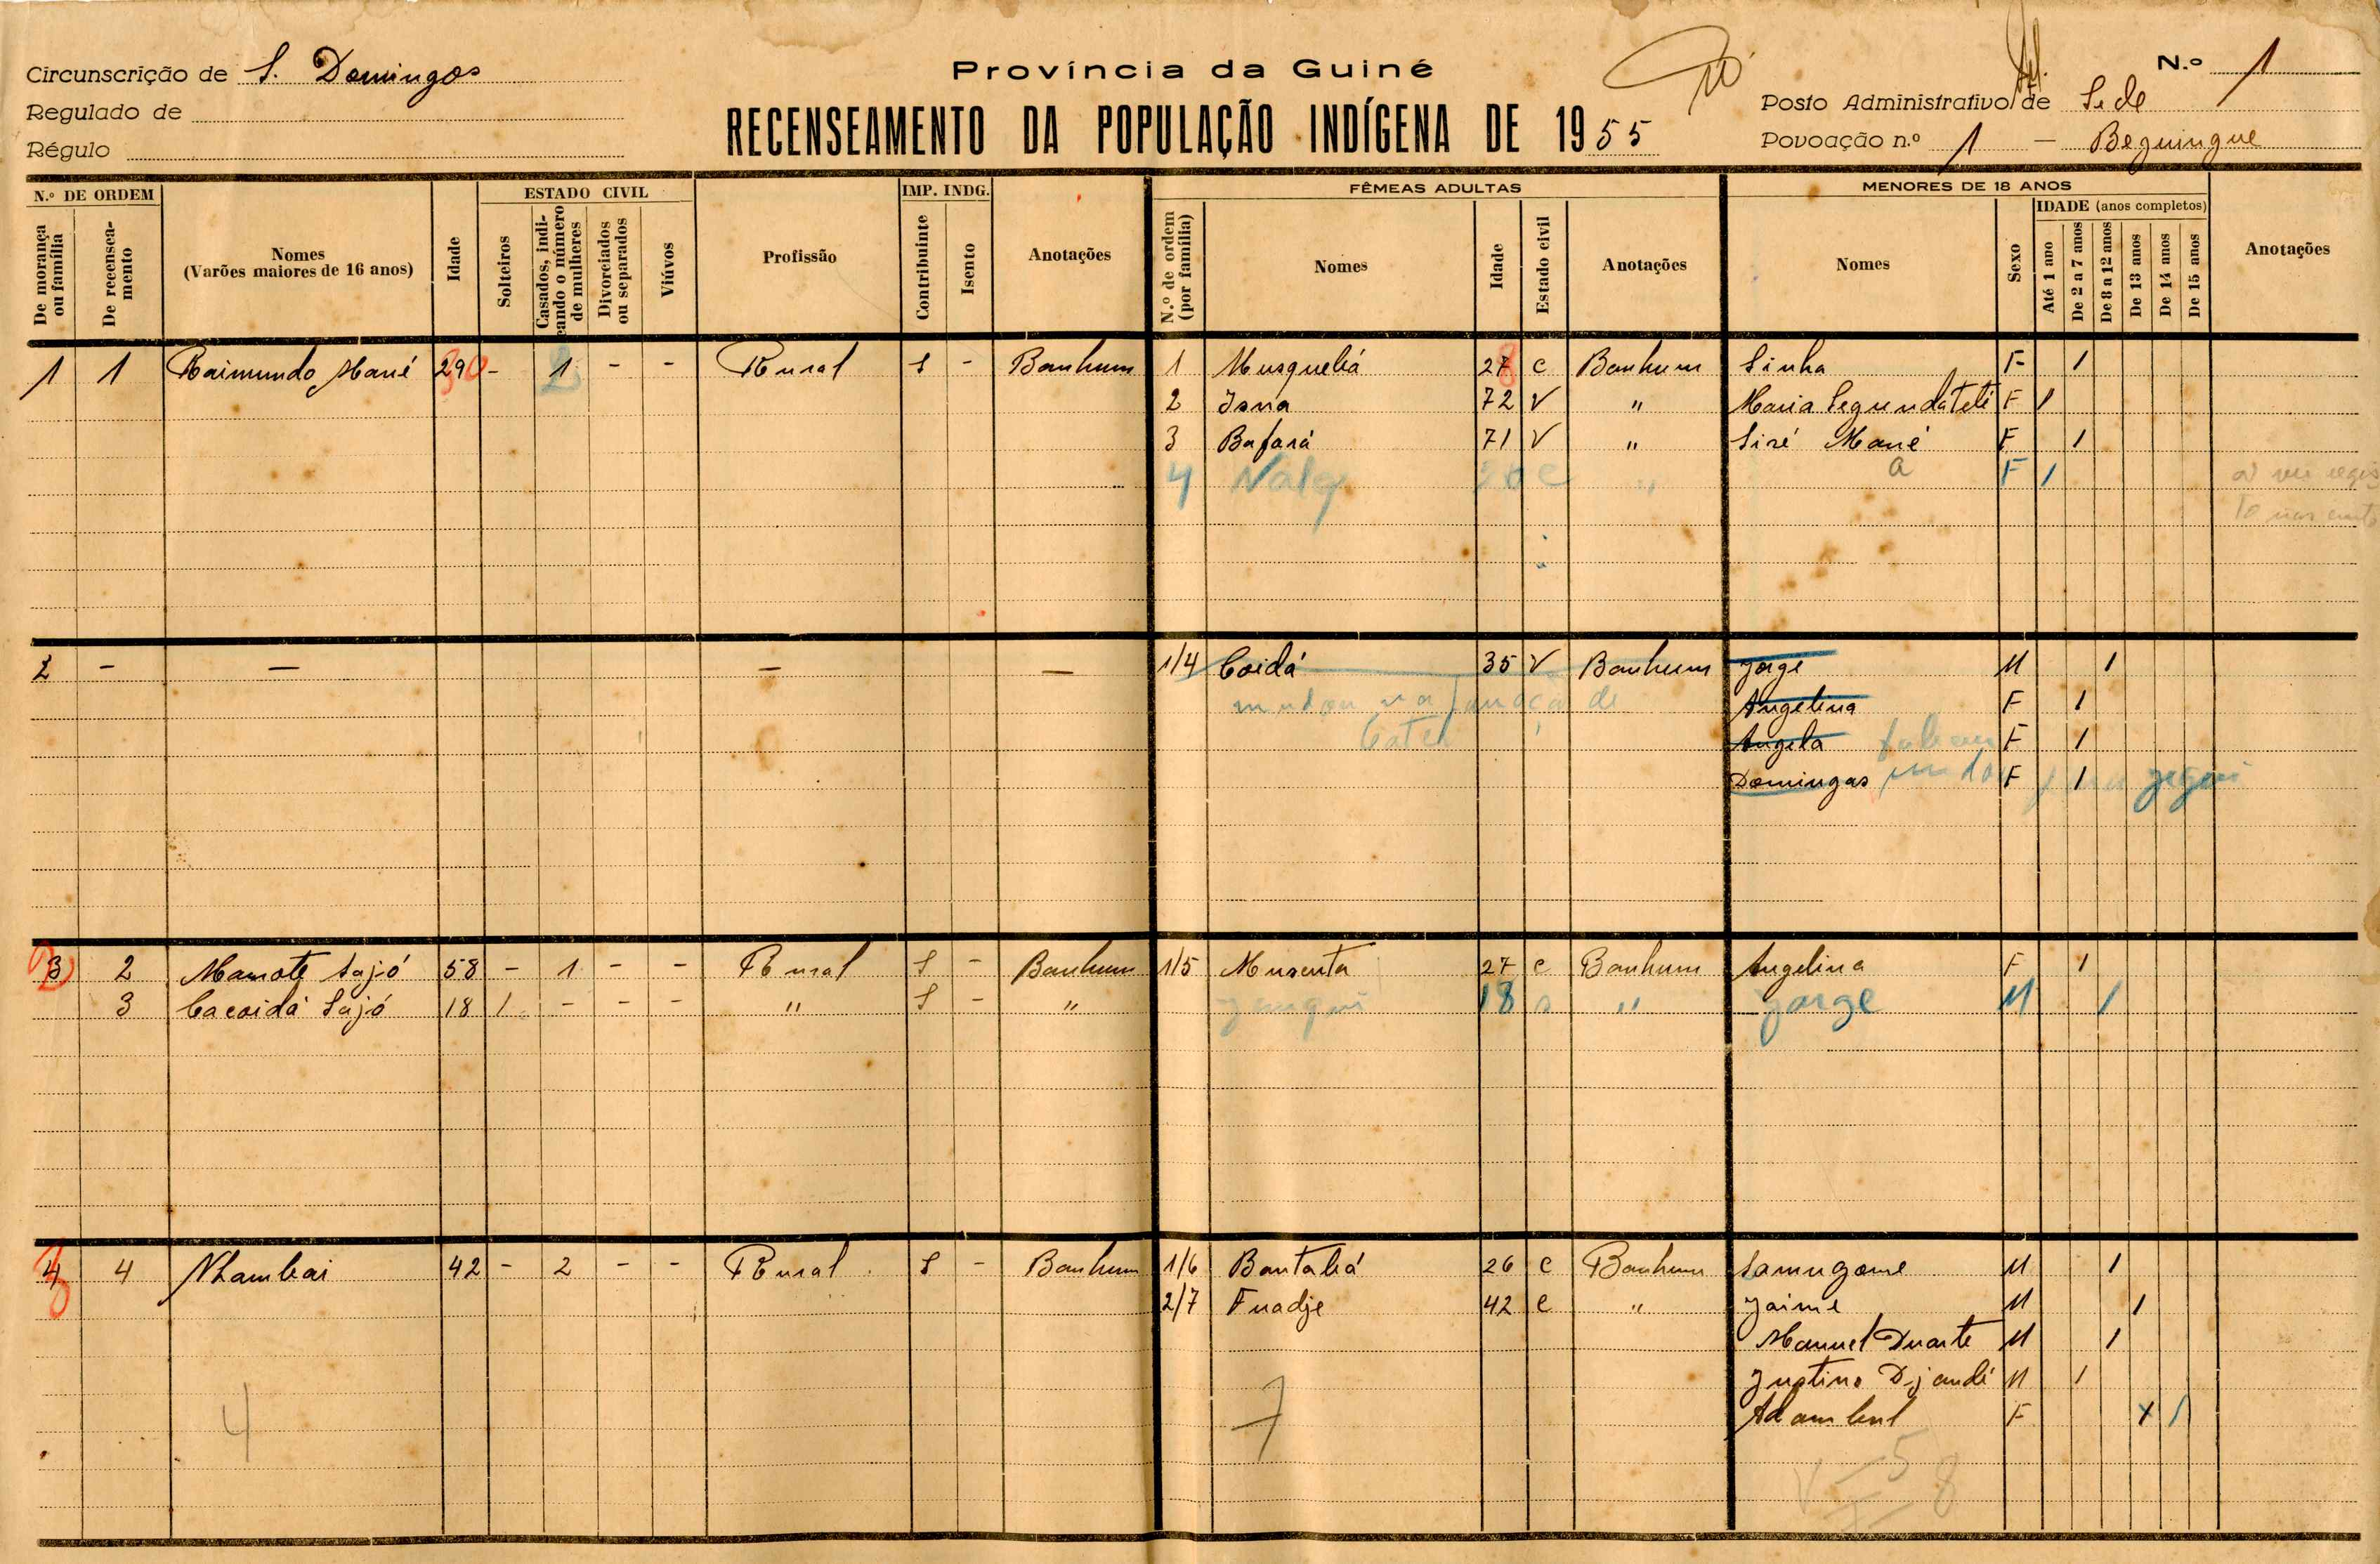 Circunscrição de S. Domingos
Regulado de
Régulo
Província da Guiné
RECENSEAMENTO DA POPULAÇÃO INDÍGENA DE 1955
N.º 1
Posto Administrativo de Sede
Povoação n.º 1 — Beguingue
N.º DE ORDEM
De morança ou família
De recenseamento
Nomes
(Varões maiores de 16 anos)
Idade
ESTADO CIVIL
Solteiros
Casados, indicando o número de mulheres
Divorciados ou separados
Viúvos
Profissão
IMP. INDG.
Contribuinte
Isento
Anotações
FÊMEAS ADULTAS
N.º de ordem (por família)
Nomes
Idade
Estado civil
Anotações
MENORES DE 18 ANOS
Nomes
Sexo
IDADE (anos completos)
Até 1 ano
De 2 a 7 anos
De 8 a 12 anos
De 13 anos
De 14 anos
De 15 anos
Anotações
1 1 Raimundo Mané 29 30 - 1 2 - - Rural S - Banhum 1 Musquebá 27 8 C Banhum Sinha F 1
2 Isna 72 V " Maria Segunda Teté F 1
3 Bafará 71 V " Siré Mané F 1
4 C " a F 1
2 - — — — 1/4 Coidá 35 V Banhum Jorge M 1
mudou de Angelina F 1
Angela F 1
Domingas F 1
3 2 Mamote Sajó 58 - 1 - - Rural S - Banhum 1/5 Musenta 27 C Banhum Angelina F 1
3 Cacoidá Sajó 18 1 - - - " S - " 18 " Jorge M 1
4 4 Nhambai 42 - 2 - - Rural S - Banhum 1/6 Bantabá 26 C Banhum Samugome M 1
2/7 Fuadje 42 C " Jaime M 1
Manuel Duarte M 1
Justino Djandi M 1
F X 1
4 7
5
8